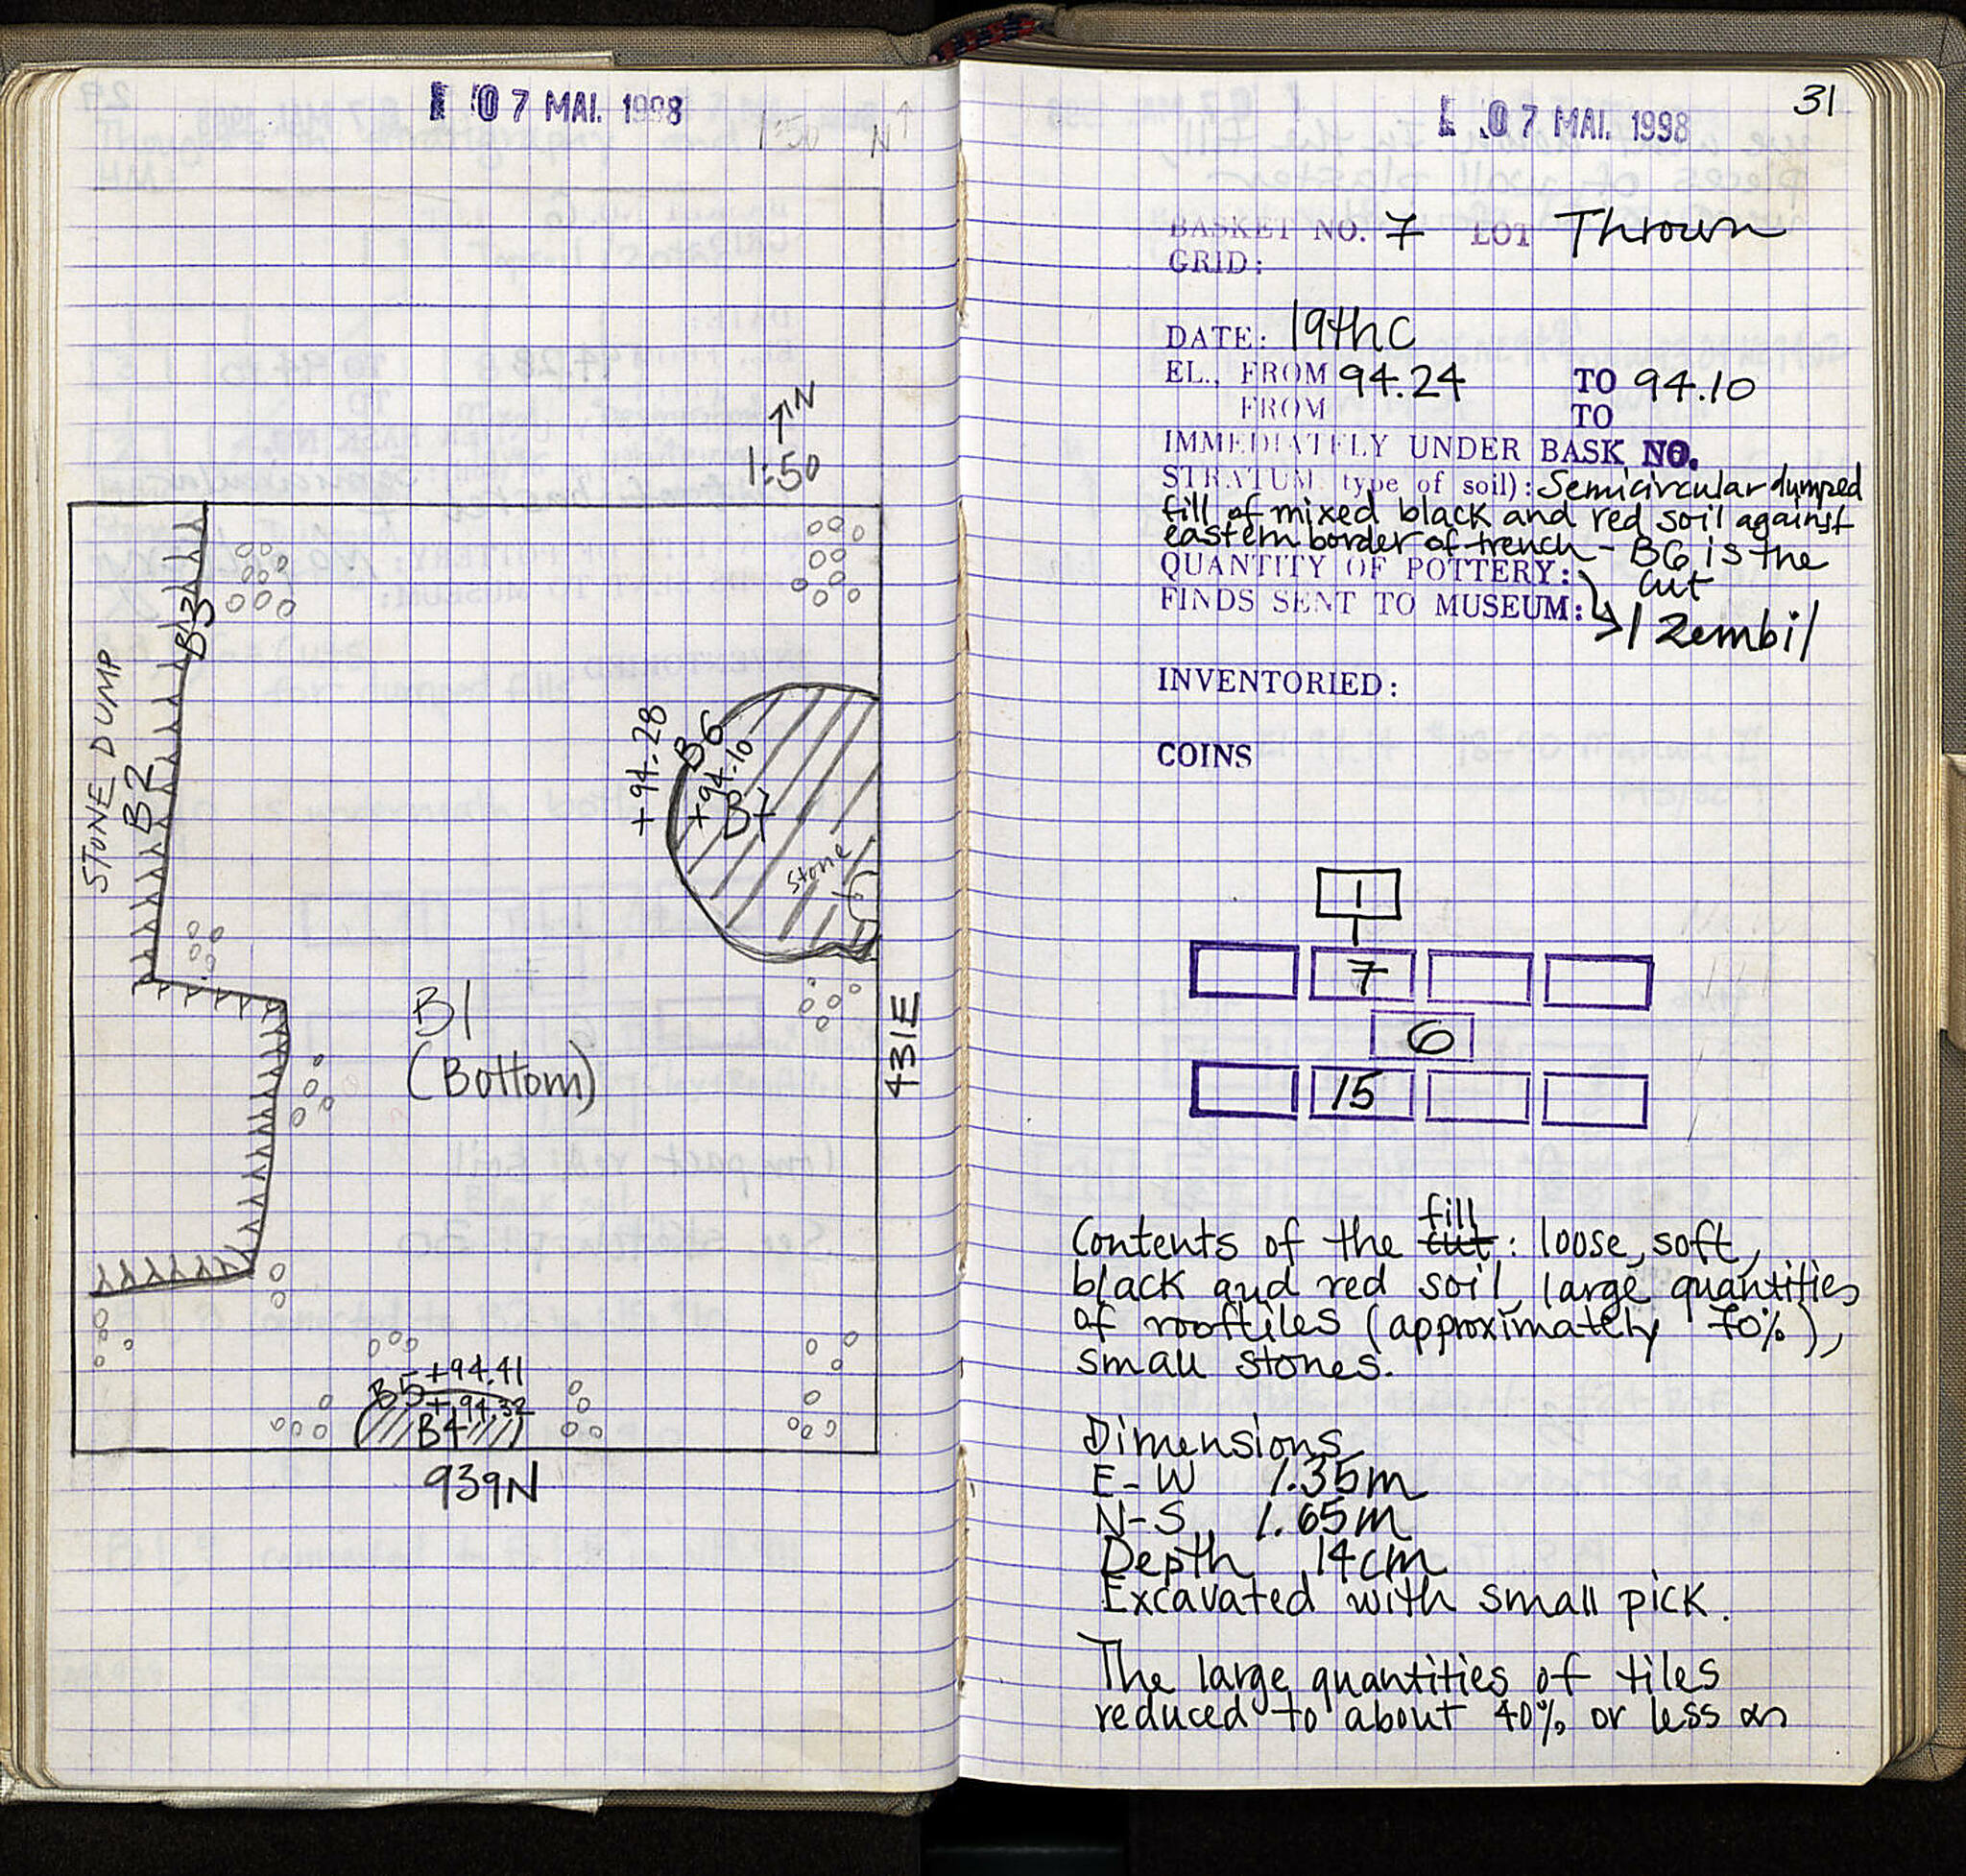 07 MAI. 1998
1:50 N
N
1:50
STONE DUMP
B3
B2
+94.28
B6
+94.10
B7
Stone
B1
(Bottom)
431E
B5 +94.41
+94.32
B4
939N
07 MAI. 1998
31
BASKET NO. 7 LOT Thrown
GRID:
DATE: 19th C
EL., FROM 94.24 TO 94.10
FROM TO
IMMEDIATELY UNDER BASK NO.
STRATUM type of soil): Semicircular dumped
fill of mixed black and red soil against
eastern border of trench - B6 is the
QUANTITY OF POTTERY: cut
FINDS SENT TO MUSEUM: 1 Zembil
INVENTORIED:
COINS
1
7
6
15
fill
Contents of the cut: loose, soft,
black and red soil, large quantities
of rooftiles (approximately 70%),
small stones.
Dimensions
E-W 1.35m
N-S 1.65m
Depth 14cm
Excavated with small pick.
The large quantities of tiles
reduced to about 40% or less as